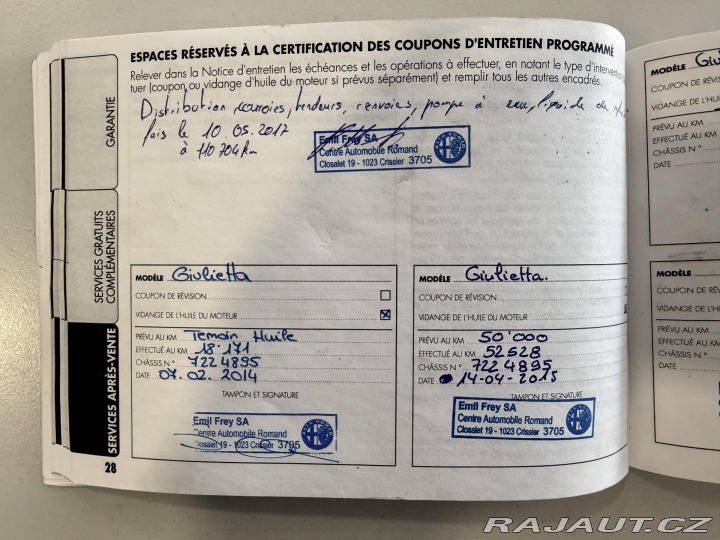 ESPACES RÉSERVÉS À LA CERTIFICATION DES COUPONS D'ENTRETIEN PROGRAMMÉ
Relever dans la Notice d'entretien les échéances et les opérations à effectuer, en notant le type d'intervention
tuer (coupon ou vidange d'huile du moteur si prévus séparément) et remplir tous les autres encadrés.
Distribution courroies, tendeurs, renvoies, pompe à eau, liquide de
fais le 10.05.2017
à 110 704 km
Emil Frey SA
Centre Automobile Romand
Closalet 19 - 1023 Crissier 3705
GARANTIE
SERVICES GRATUITS
COMPLÉMENTAIRES
SERVICES APRÈS-VENTE
28
MODÈLE Giulietta
COUPON DE RÉVISION
VIDANGE DE L'HUILE DU MOTEUR
PRÉVU AU KM Temoin Huile
EFFECTUÉ AU KM 18'171
CHÂSSIS N° 7224895
DATE 07.02.2014
TAMPON ET SIGNATURE
Emil Frey SA
Centre Automobile Romand
Closalet 19 - 1023 Crissier 3705
MODÈLE Giulietta.
COUPON DE RÉVISION
VIDANGE DE L'HUILE DU MOTEUR
PRÉVU AU KM 50'000
EFFECTUÉ AU KM 52528
CHÂSSIS N° 7224895
DATE 14-04-2015
TAMPON ET SIGNATURE
Emil Frey SA
Centre Automobile Romand
Closalet 19 - 1023 Crissier 3705
MODÈLE Giu
COUPON DE RÉVI
VIDANGE DE L'HU
PRÉVU AU KM
EFFECTUÉ AU KM
CHÂSSIS N°
DATE
MODÈLE
COUPON DE RÉ
VIDANGE DE L'H
PRÉVU AU KM
EFFECTUÉ AU K
CHÂSSIS N°
DATE
RAJAUT.CZ